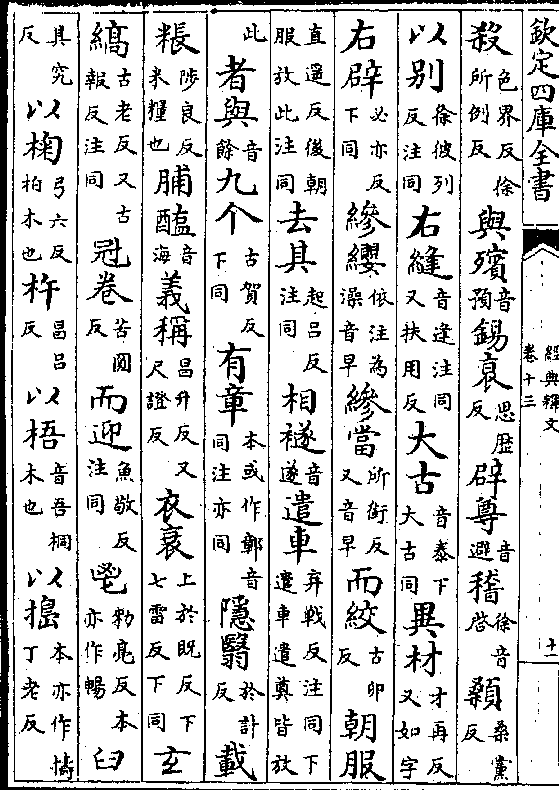 欽定四庫全書
經典釋文
卷十三
十一
殺色界反徐所例反與殯音預錫衰思歴反辟尊音避稽徐音啓顙桑黨反
以別徐彼列反注同右縫音逢注同又扶用反大古音泰下大古同異材才再反又如字
右辟必亦反下同縿纓依注為澡音早縿當所銜反又音早而絞古卯反朝服
直遥反後朝服放此注同去其起呂反注同相襚音遂遣車弃戰反注同下遣車遣奠皆放
此者與音餘九个古賀反下同有章本或作鄣音同注亦同隱翳於計反載
粻陟良反米糧也脯醢音海義稱昌升反又尺證反衣衰上於既反下七雷反下同玄
縞古老反又古報反注同冠卷苦圓反而迎魚敬反注同鬯勑亮反本亦作暢臼
其究反以椈弓六反柏木也杵昌呂反以梧音吾桐木也以搗本亦作擣丁老反